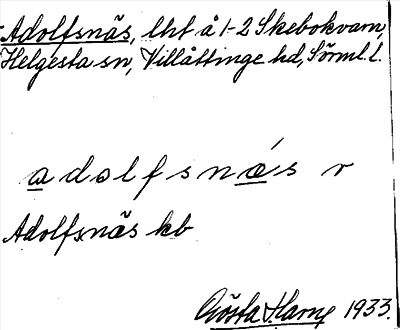 Adolfsnäs, lht å 1-2 Skebokvarn,
Helgesta sn, Villåttinge hd, Sörml. l.
adolfsnä́s v
Adolfsnäs kb
Gösta Harne 1933.